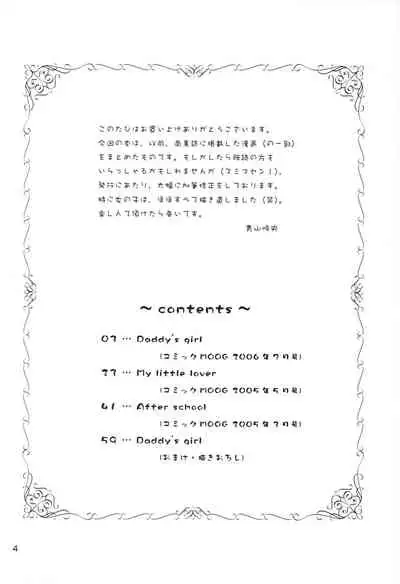 このたびはお買い上げありがとうございます。
今回の本は、以前、商業誌に掲載した漫画（の一部）
をまとめたものです。もしかしたら既読の方も
いらっしゃるかもしれませんが（スミマセン！）、
発行にあたり、大幅に加筆修正をしております。
特に女の子は、ほぼすべて描き直しました（笑）。
楽しんで頂けたら幸いです。
～ contents ～
07 … Daddy's girl
(コミックMOOG 2006年7月号)
My little lover
(コミックMOOG 2005年5月号)
41 … After school
(コミックMOOG 2005年7月号)
59 … Daddy's girl
(おまけ・描きおろし)
4